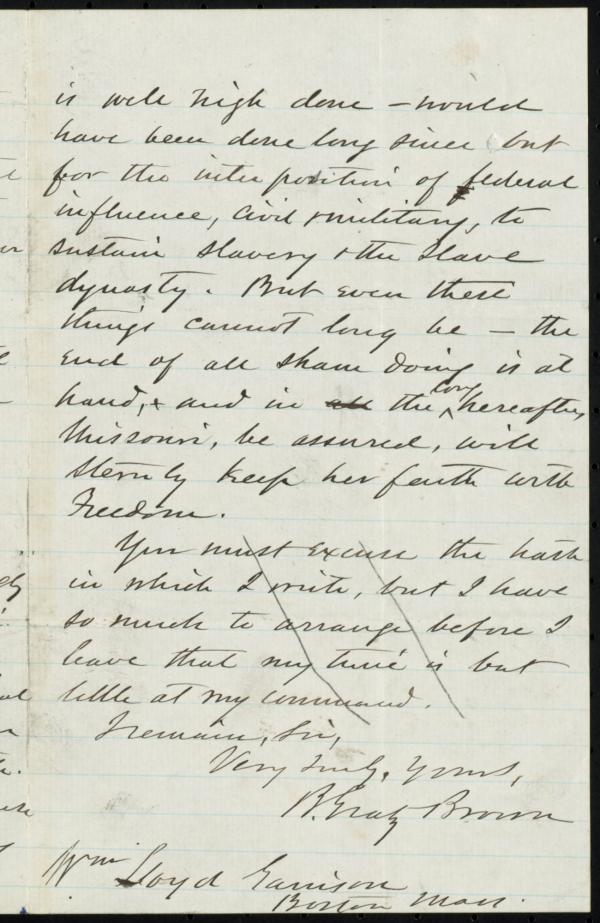 is well nigh done – would
have been done long since but
for the interposition of federal
influence, civil & military, to
sustain slavery & the slave
dynasty. But even these
things cannot long be – the
end of all sham doing is at
hand, & and in all the long hereafter,
Missouri, be assured, will
sternly keep her faith with
Freedom.
You must excuse the haste
in which I write, but I have
so much to arrange before I
leave that my time is but
little at my command.
I remain, Sir,
Very truly, yours,
B. Gratz Brown
Wm Lloyd Garrison
Boston Mass.